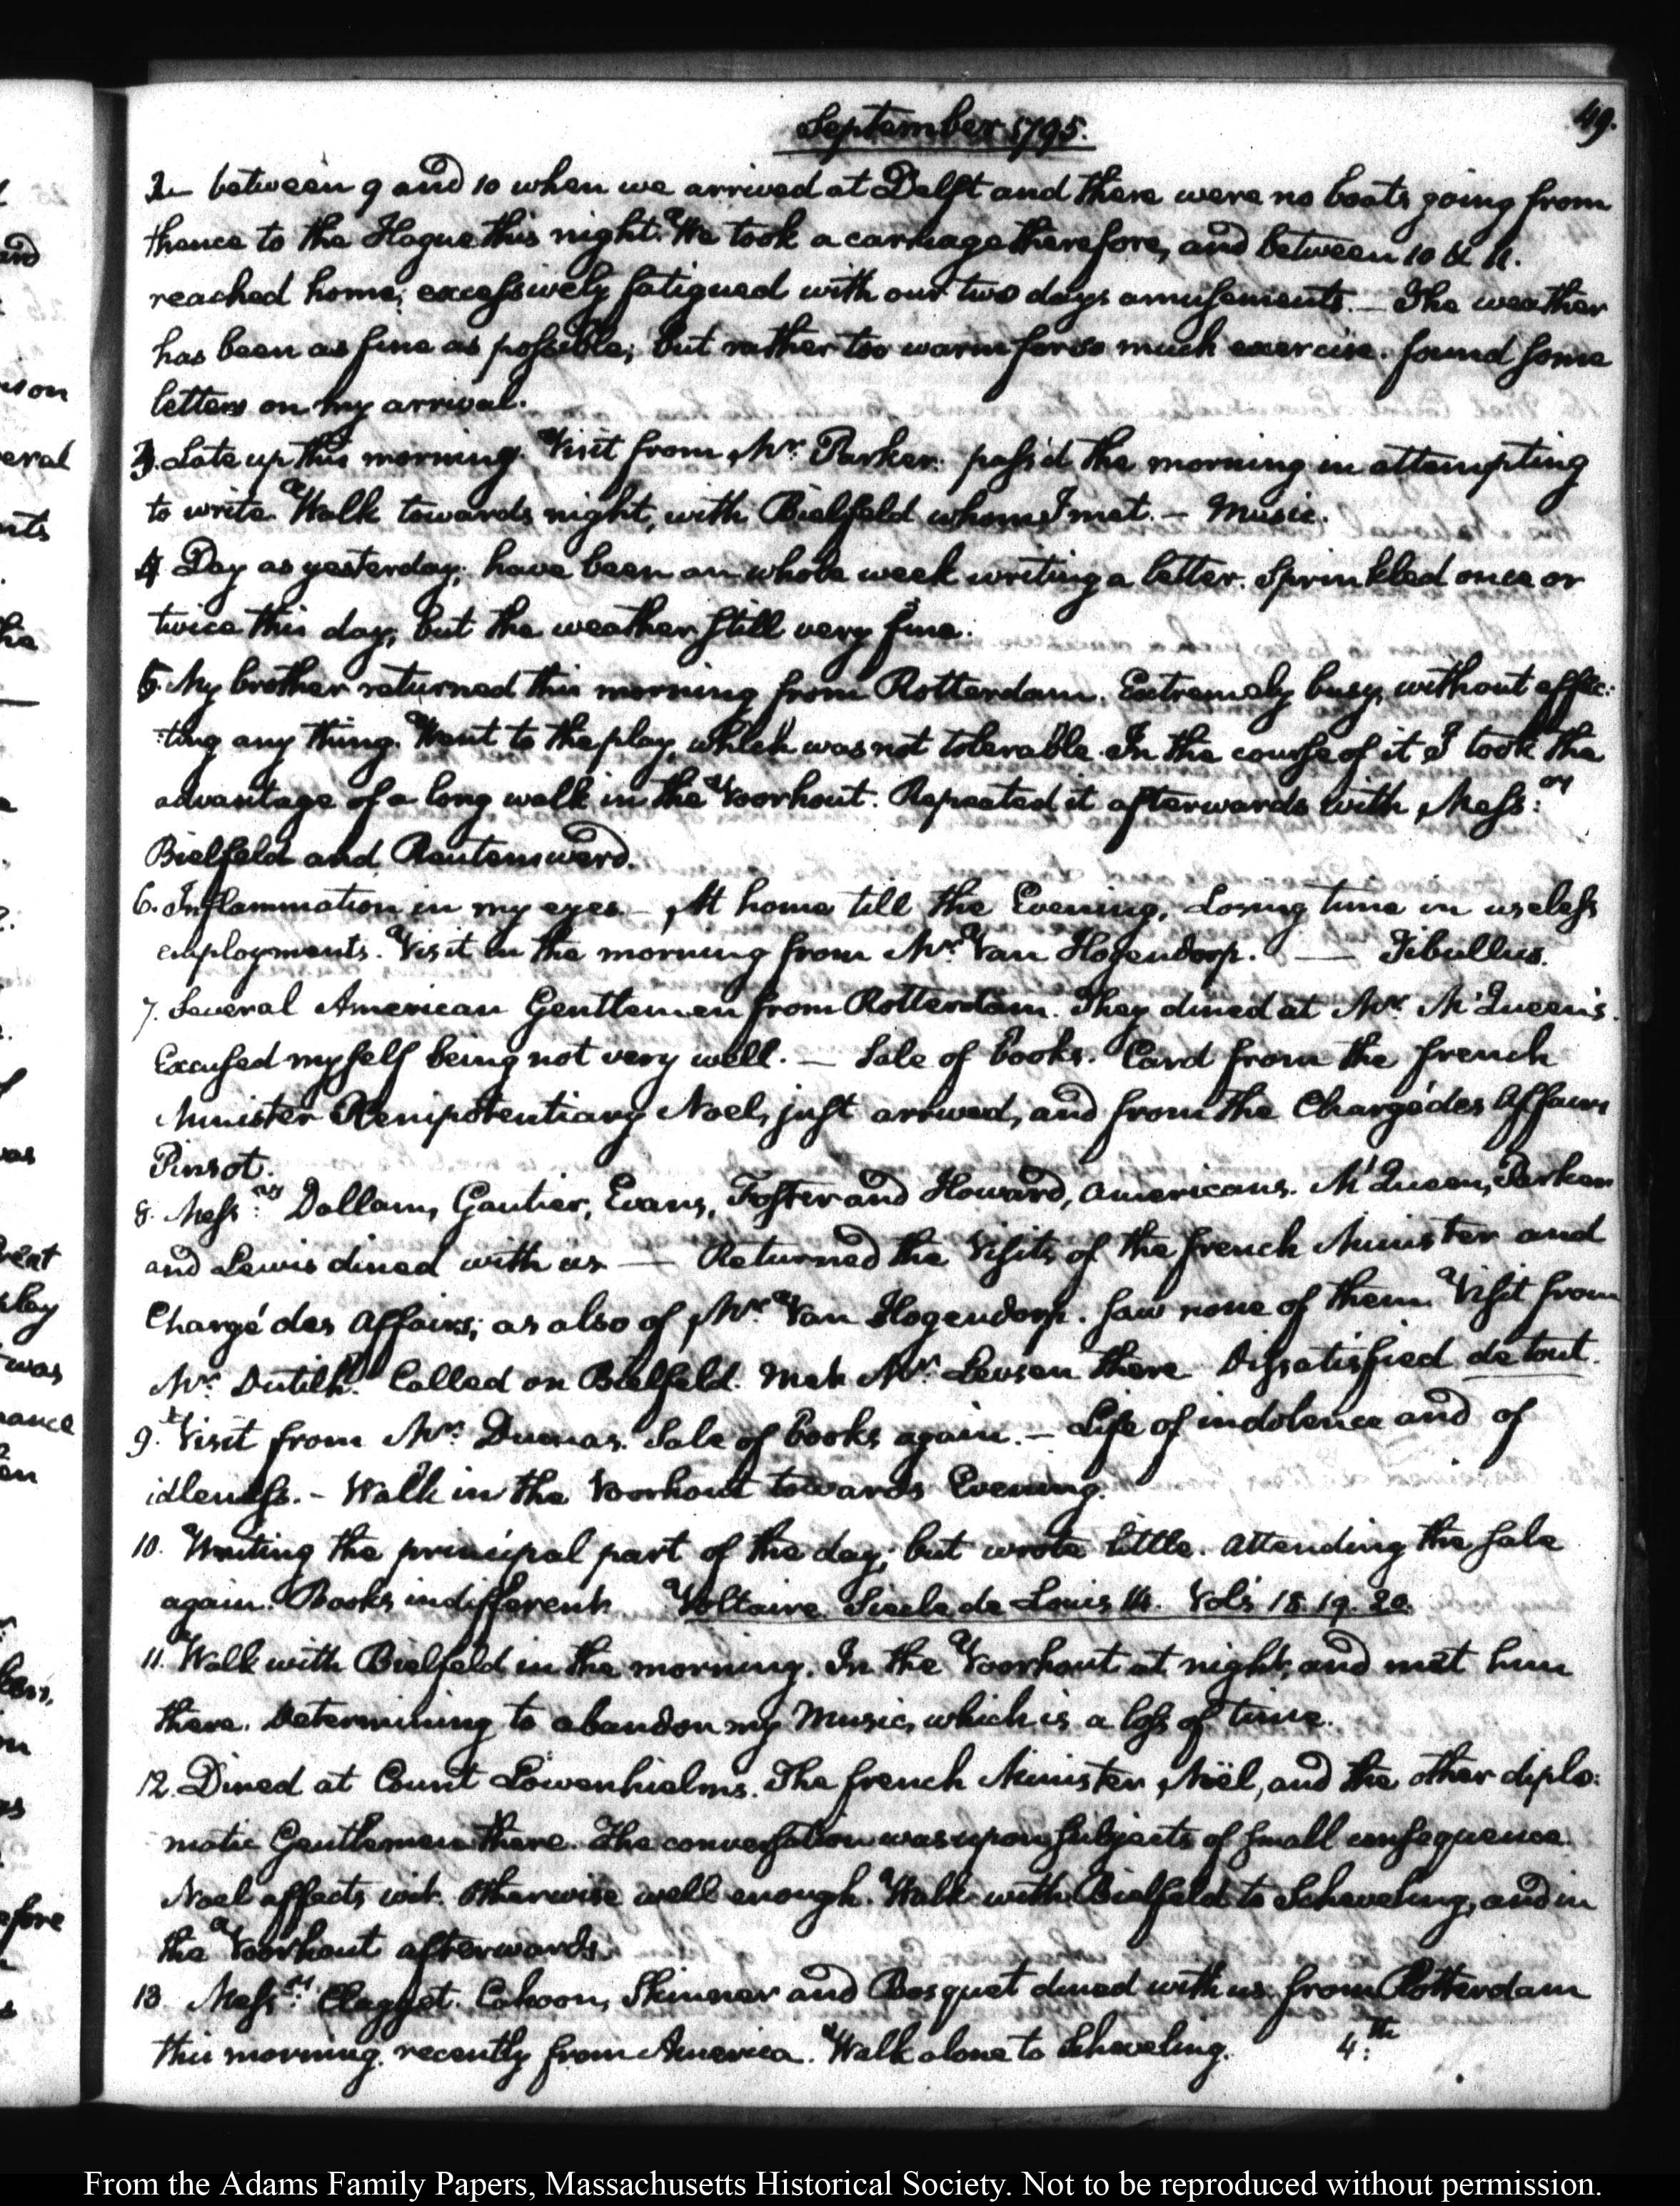 49.
September 1795.
2 between 9 and 10 when we arrived at Delft and there were no boats going from
thence to the Hague this night. We took a carriage therefore, and between 10 & 11.
reached home; excessively fatigued with our two days amusements. — The weather
has been as fine as possible; but rather too warm for so much exercise. found some
letters on my arrival.
3. Late up this morning. Visit from Mr. Parker. pass'd the morning in attempting
to write. Walk towards night, with Bielfeld whom I met. — Music.
4 Day as yesterday; have been an whole week writing a letter. Sprinkled once or
twice this day, but the weather still very fine.
5. My brother returned this morning from Rotterdam. Extremely busy, without effec:
:ting any thing. Went to the play, which was not tolerable. In the course of it I took the
advantage of a long walk in the Voorhout. Repeated it afterwards with Mess:rs
Bielfeld and Reutersward.
6. Inflammation in my eyes. — At home till the Evening. Losing time in useless
employments. Visit in the morning from Mr. Van Hogendorp. — Tibullus.
7. Several American Gentlemen from Rotterdam. They dined at Mr. McQueen's.
Excused myself being not very well. — Sale of books. Card from the french
Minister Plenipotentiary Noel, just arrived, and from the Chargé des Affairs
Pinsot.
8. Mess:rs Dallam, Gautier, Evans, Foster and Howard, Americans. McQueen, Parker
and Lewis dined with us — Returned the Visits of the french Minister and
Chargé des Affairs; as also of Mr. Van Hogendorp. saw none of them. Visit from
Mr. Dutilh. Called on Bielfeld. Met Mr. Levsen there. Dissatisfied de tout.
9. Visit from Mr. Dumas. Sale of books again. — Life of indolence and of
idleness. — Walk in the Voorhout towards Evening.
10. Writing the principal part of the day; but wrote little. Attending the sale
again. Books indifferent. Voltaire Siecle de Louis 14. Vols 18. 19. 20.
11. Walk with Bielfeld in the morning. In the Voorhout at night, and met him
there. Determining to abandon my Music, which is a loss of time.
12. Dined at Count Löwenhielms. The french Minister, Noël, and the other diplo:
matic Gentlemen there. The conversation was upon subjects of small consequence.
Noel affects wit. Otherwise well enough. Walk with Bielfeld to Scheveling, and in
the Voorhout afterwards.
13 Mess:rs Clagget. Cahoon, Skinner and Bosquet dined with us. from Rotterdam
this morning. recently from America. Walk alone to Scheveling. 4:th
From the Adams Family Papers, Massachusetts Historical Society. Not to be reproduced without permission.